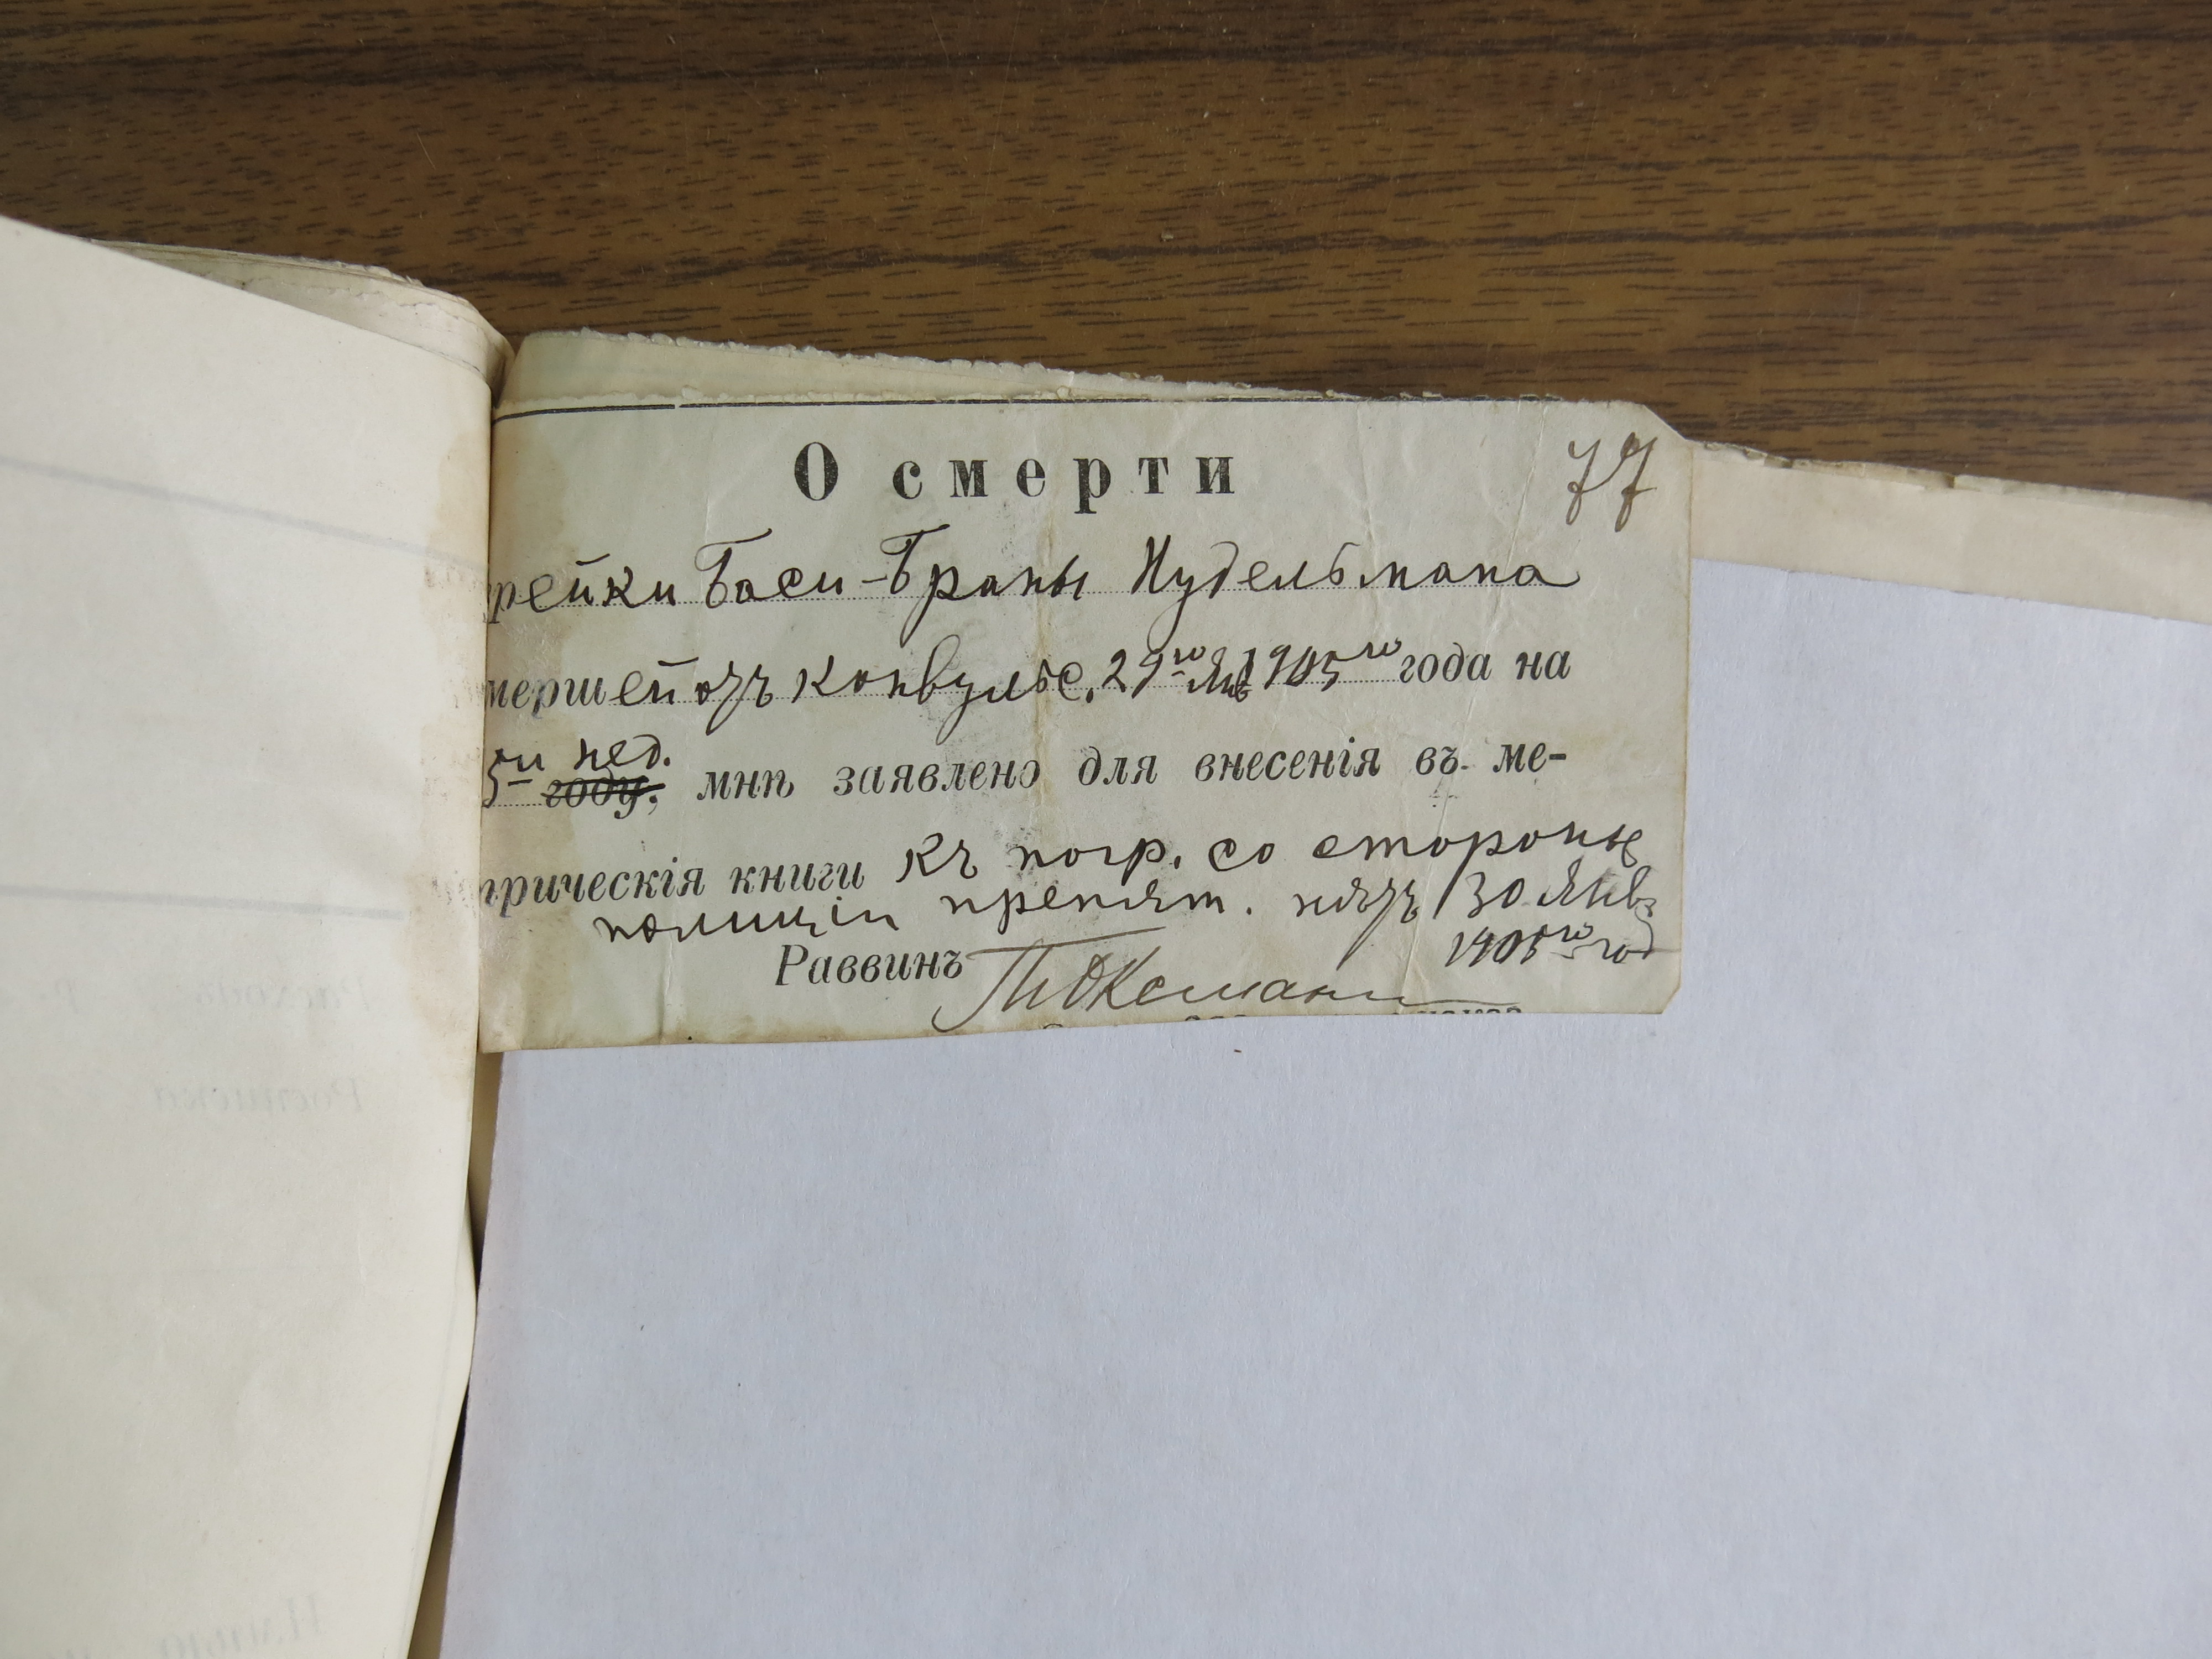 О смерти
77
рейки Баси-Браны Нудельмана
мершей отъ конвульс. 29го Янв 1905го года на
5ти нед. году, мнѣ заявлено для внесенія въ ме-
трическія книги къ погр. со стороны
полиціи препят. нѣтъ 30 Янв
1905го год
Раввинъ